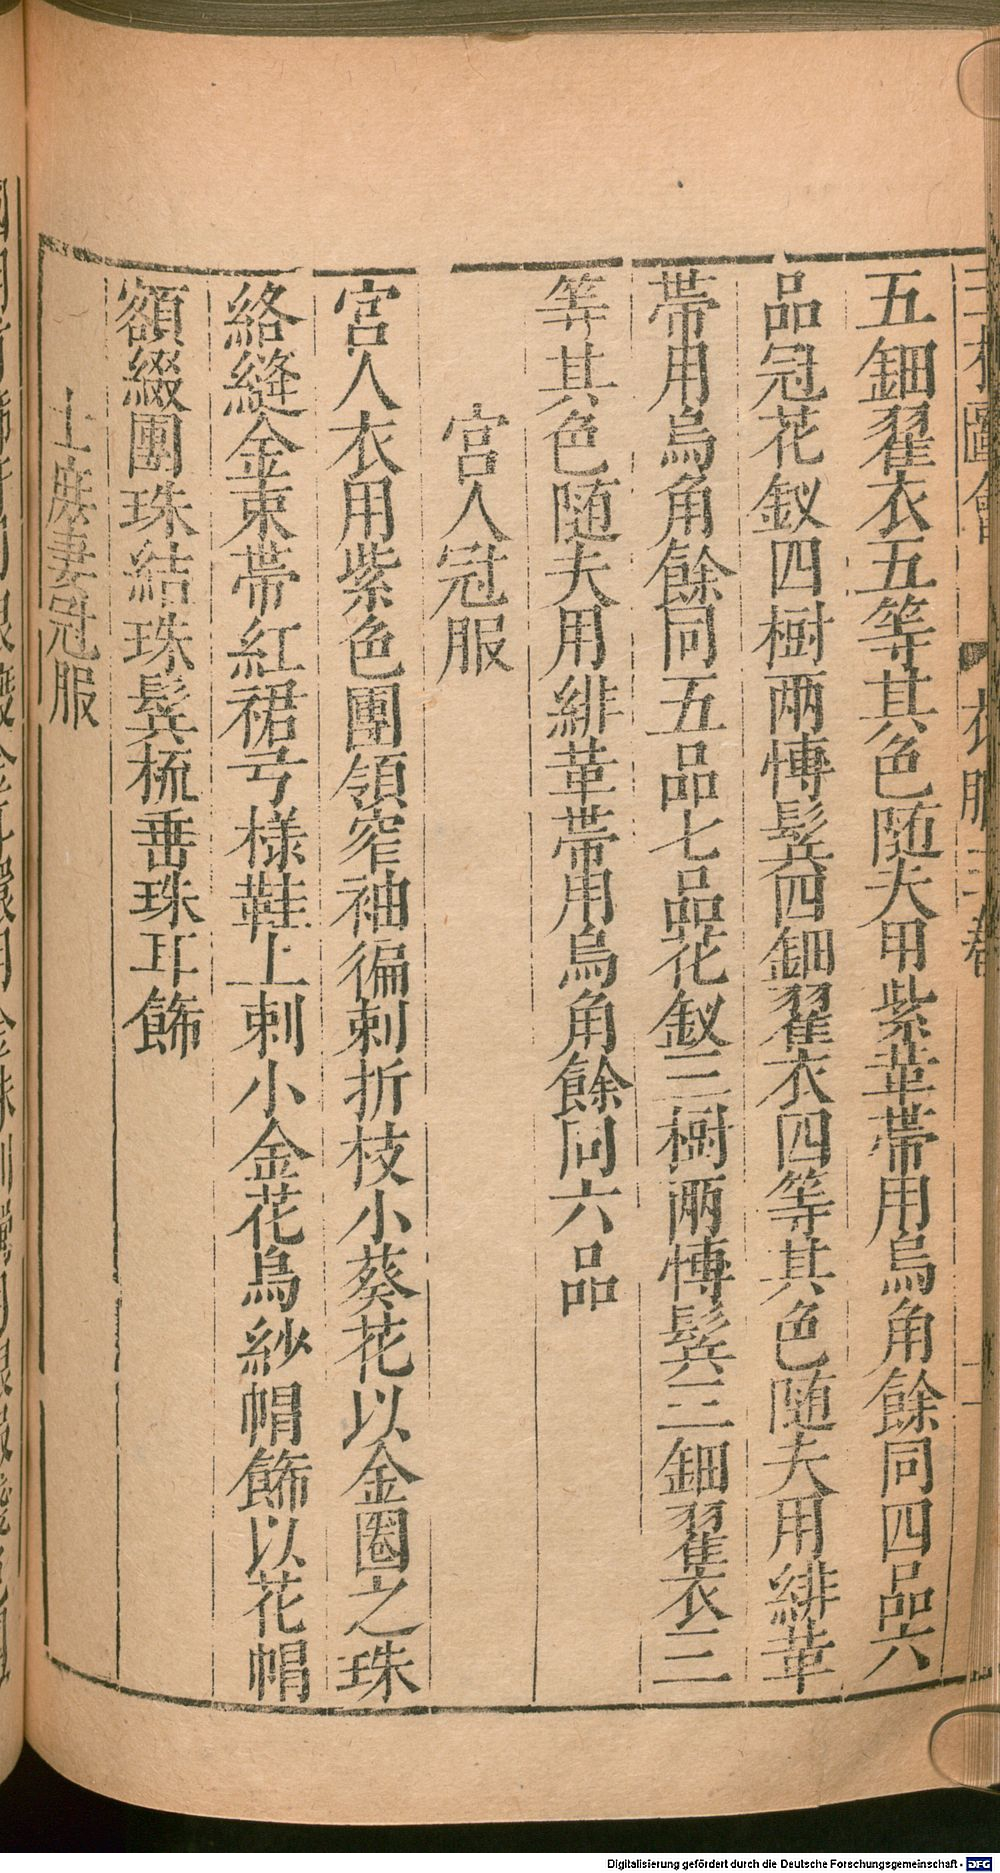 三才圖會 衣服三卷
五鈿翟衣五等其色随夫用紫革帶用烏角餘同四品六
品冠花釵四樹兩慱鬂四鈿翟衣四等其色随夫用緋革
帶用烏角餘同五品七品花釵三樹兩慱鬂三鈿翟衣三
等其色随夫用緋革帶用烏角餘同六品
宮人冠服
宮人衣用紫色團領窄袖徧刺折枝小葵花以金圈之珠
絡縫金束帶紅裙弓様鞋上刺小金花烏紗帽飾以花帽
額綴團珠結珠鬂梳垂珠耳飾
士庶妻冠服
Digitalisierung gefördert durch die Deutsche Forschungsgemeinschaft - DFG